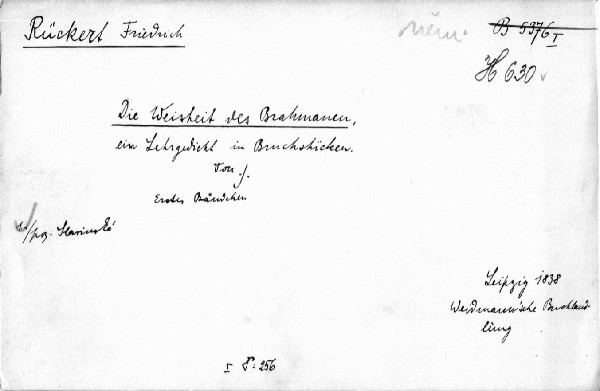 Rückert Friedrich
něm.
B 5376 I
H 630
Die Weisheit des Brahmanen,
ein Lehrgedicht in Bruchstücken.
Von ∫.
Erstes Bändchen
Leipzig 1838
Weidmann'sche Buchhand-
lung
I 8° 256